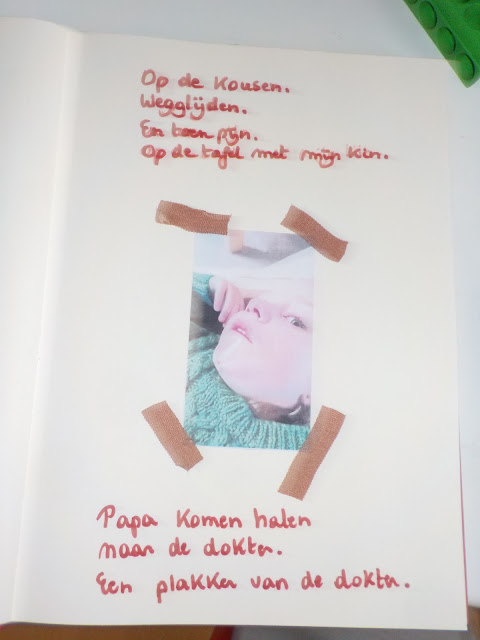 Op de kousen.
Wegglijden.
En toen pijn.
Op de tafel met mijn kin.
Papa komen halen
naar de dokter.
Een plakker van de dokter.